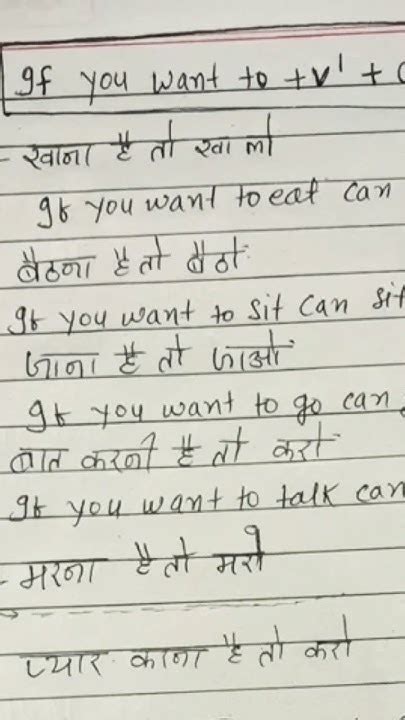 If you want to + V¹ + C
- खाना है तो खा लो
If you want to eat can
बैठना है तो बैठो
If you want to sit can sit
जाना है तो जाओ
If you want to go can
बात करनी है तो करो
If you want to talk can
- मरना है तो मरो
प्यार काना है तो करो